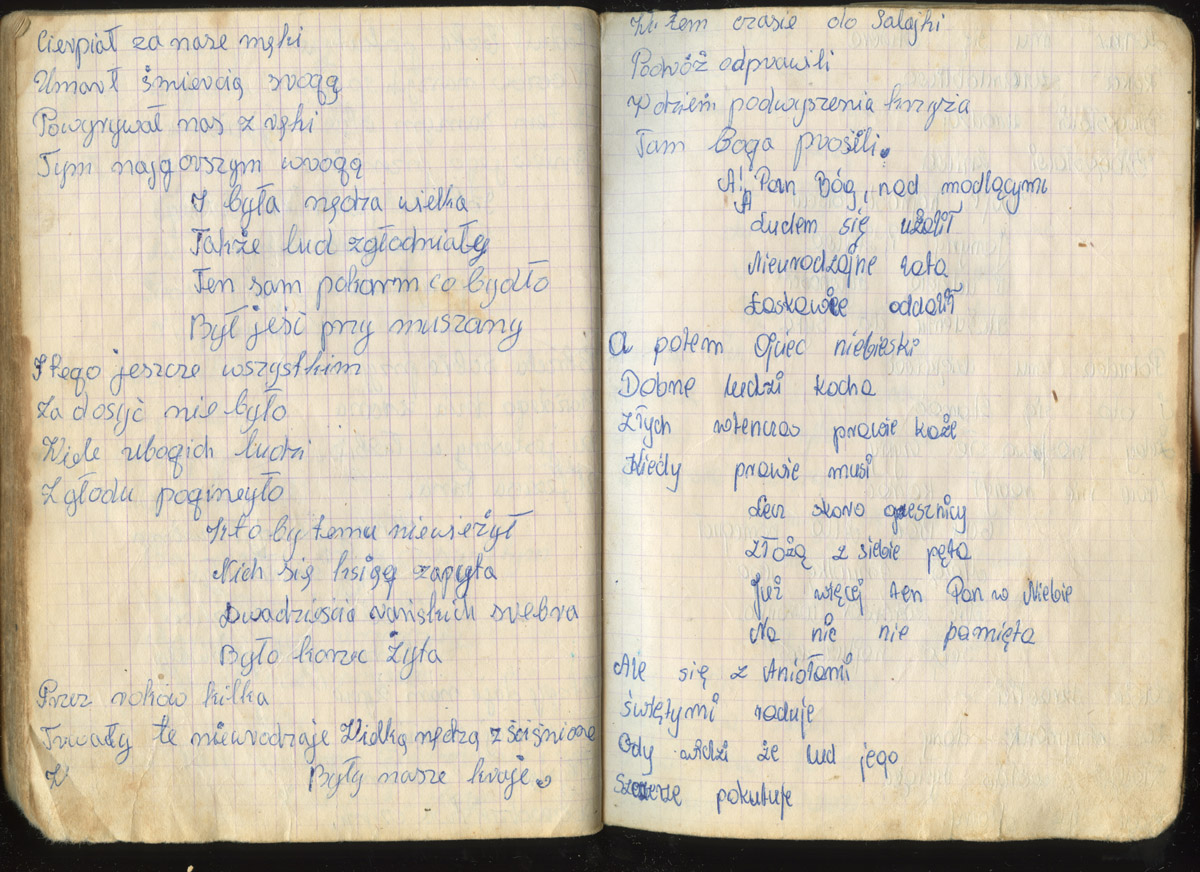 Cierpiał za nase męki
Umarł śmiercią svoqą
Powyrywał nas z ręki
Tym najgorszym wroqą
I była nędza wielka
Także lud zgłodniałey
Ten sam pokarm co bydło
Był jeść przy muszany
I tego jeszcze wszystkim
Za dosyć nie było
Wiele ubogich ludzi
Z głodu pogineyło
Kto by temu niewieżył
Nich się ksiąg zapyta
Dwadzieścia rańskich srebra
Było korzec Żyta
Przez roków kilka
Trwały te nieurodzaje Wielką nędzą z ściśnione
W Były nasze kraje.
W tem czasie do Salajki
Podróż odprawili
W dzień podwyszenia krzyża
Tam Boga prosili.
A! Pan Bóg nad modlącymi
A
Ludem się użalił
Nieurodzajne lata
Łaskawie oddalił
A potem Ojiec niebieski
Dobne ludzi kocha
Złych wtenczas prawie każe
Kiedy prawie musi
Lecz skoro grzesznicy
Złożą z siebie pęta
Już więcej ten Pan w Niebie
Na nic nie pamięta
Ale się z Aniołami
świętymi raduje
Gdy widzi że lud jego
Szczerze pokutuje